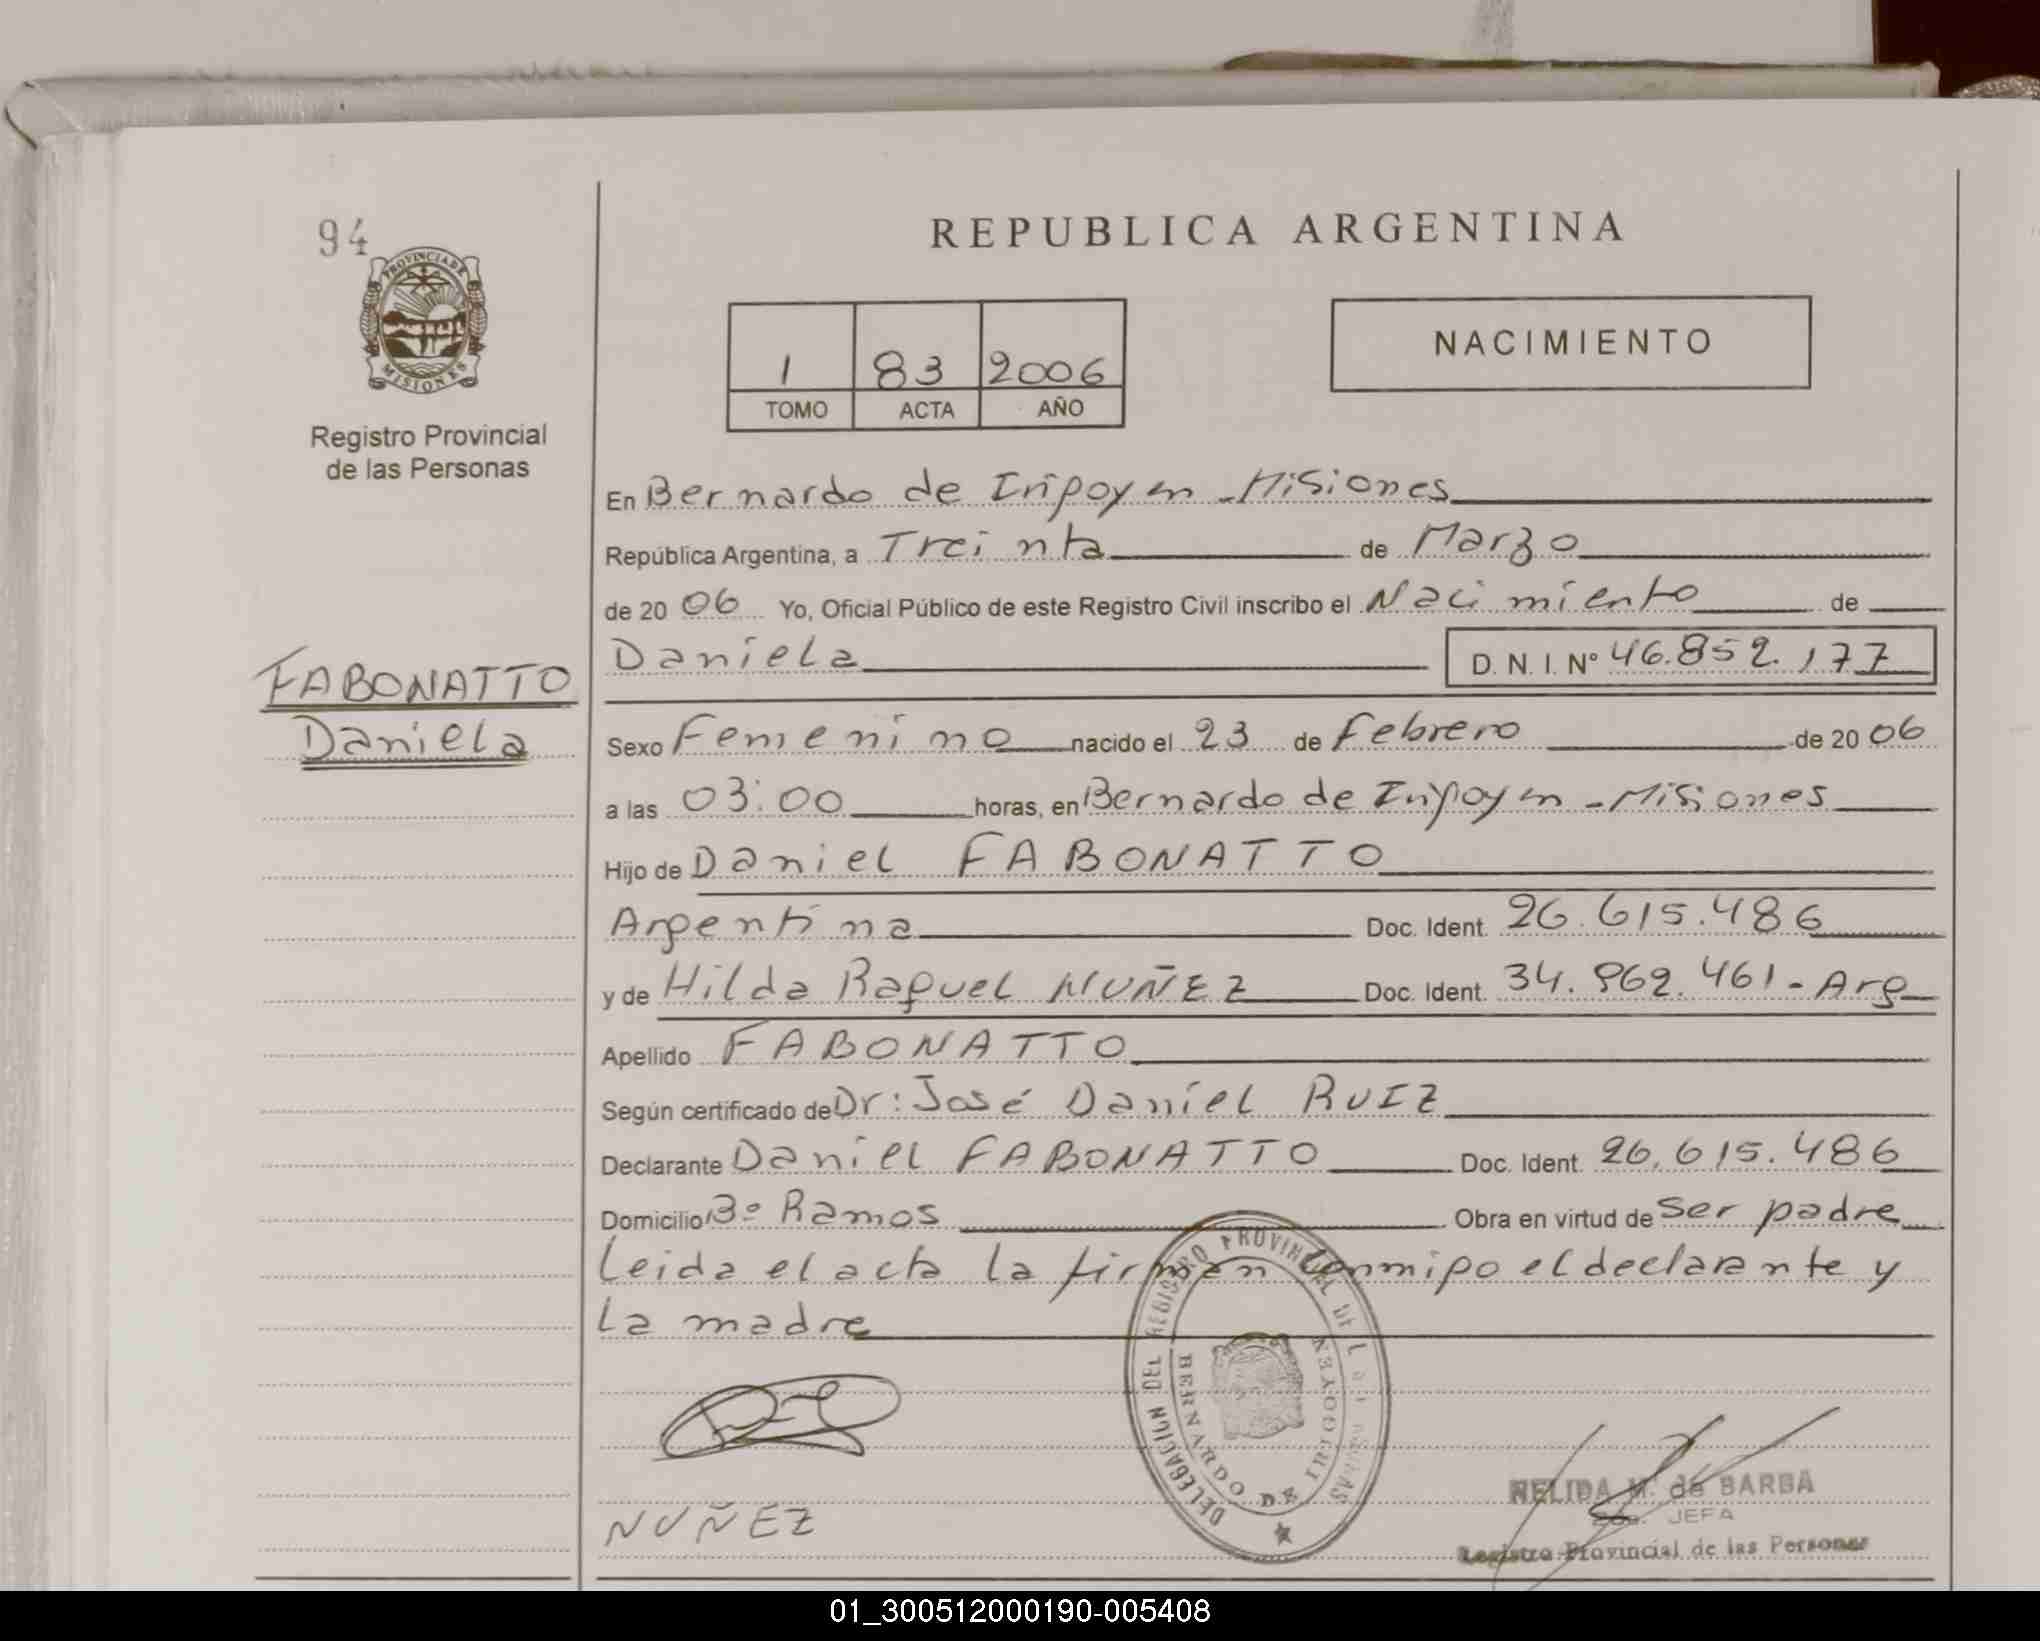 94
PROVINCIA DE
MISIONES
Registro Provincial
de las Personas
FABONATTO
Daniela
REPUBLICA ARGENTINA
1 83 2006
TOMO ACTA AÑO
NACIMIENTO
En Bernardo de Irigoyen - Misiones
República Argentina, a Treinta de Marzo
de 20 06 Yo, Oficial Público de este Registro Civil inscribo el Nacimiento de
Daniela D. N. I. Nº 46.852.177
Sexo Femenino nacido el 23 de Febrero de 20 06
a las 03:00 horas, en Bernardo de Irigoyen - Misiones
Hijo de Daniel FABONATTO
Argentina Doc. Ident. 26.615.486
y de Hilda Raquel NUÑEZ Doc. Ident. 34.962.461 - Arg
Apellido FABONATTO
Según certificado de Dr: José Daniel RUIZ
Declarante Daniel FABONATTO Doc. Ident. 26.615.486
Domicilio Bº Ramos Obra en virtud de ser padre
Leida el acta la firman conmigo el declarante y
La madre
DELEGACION DEL REGISTRO PROVINCIAL DE LAS
BERNARDO DE IRIGOYEN
NUÑEZ
NELIDA M. de BARBA
JEFA
Registro Provincial de las Personas
01_300512000190-005408